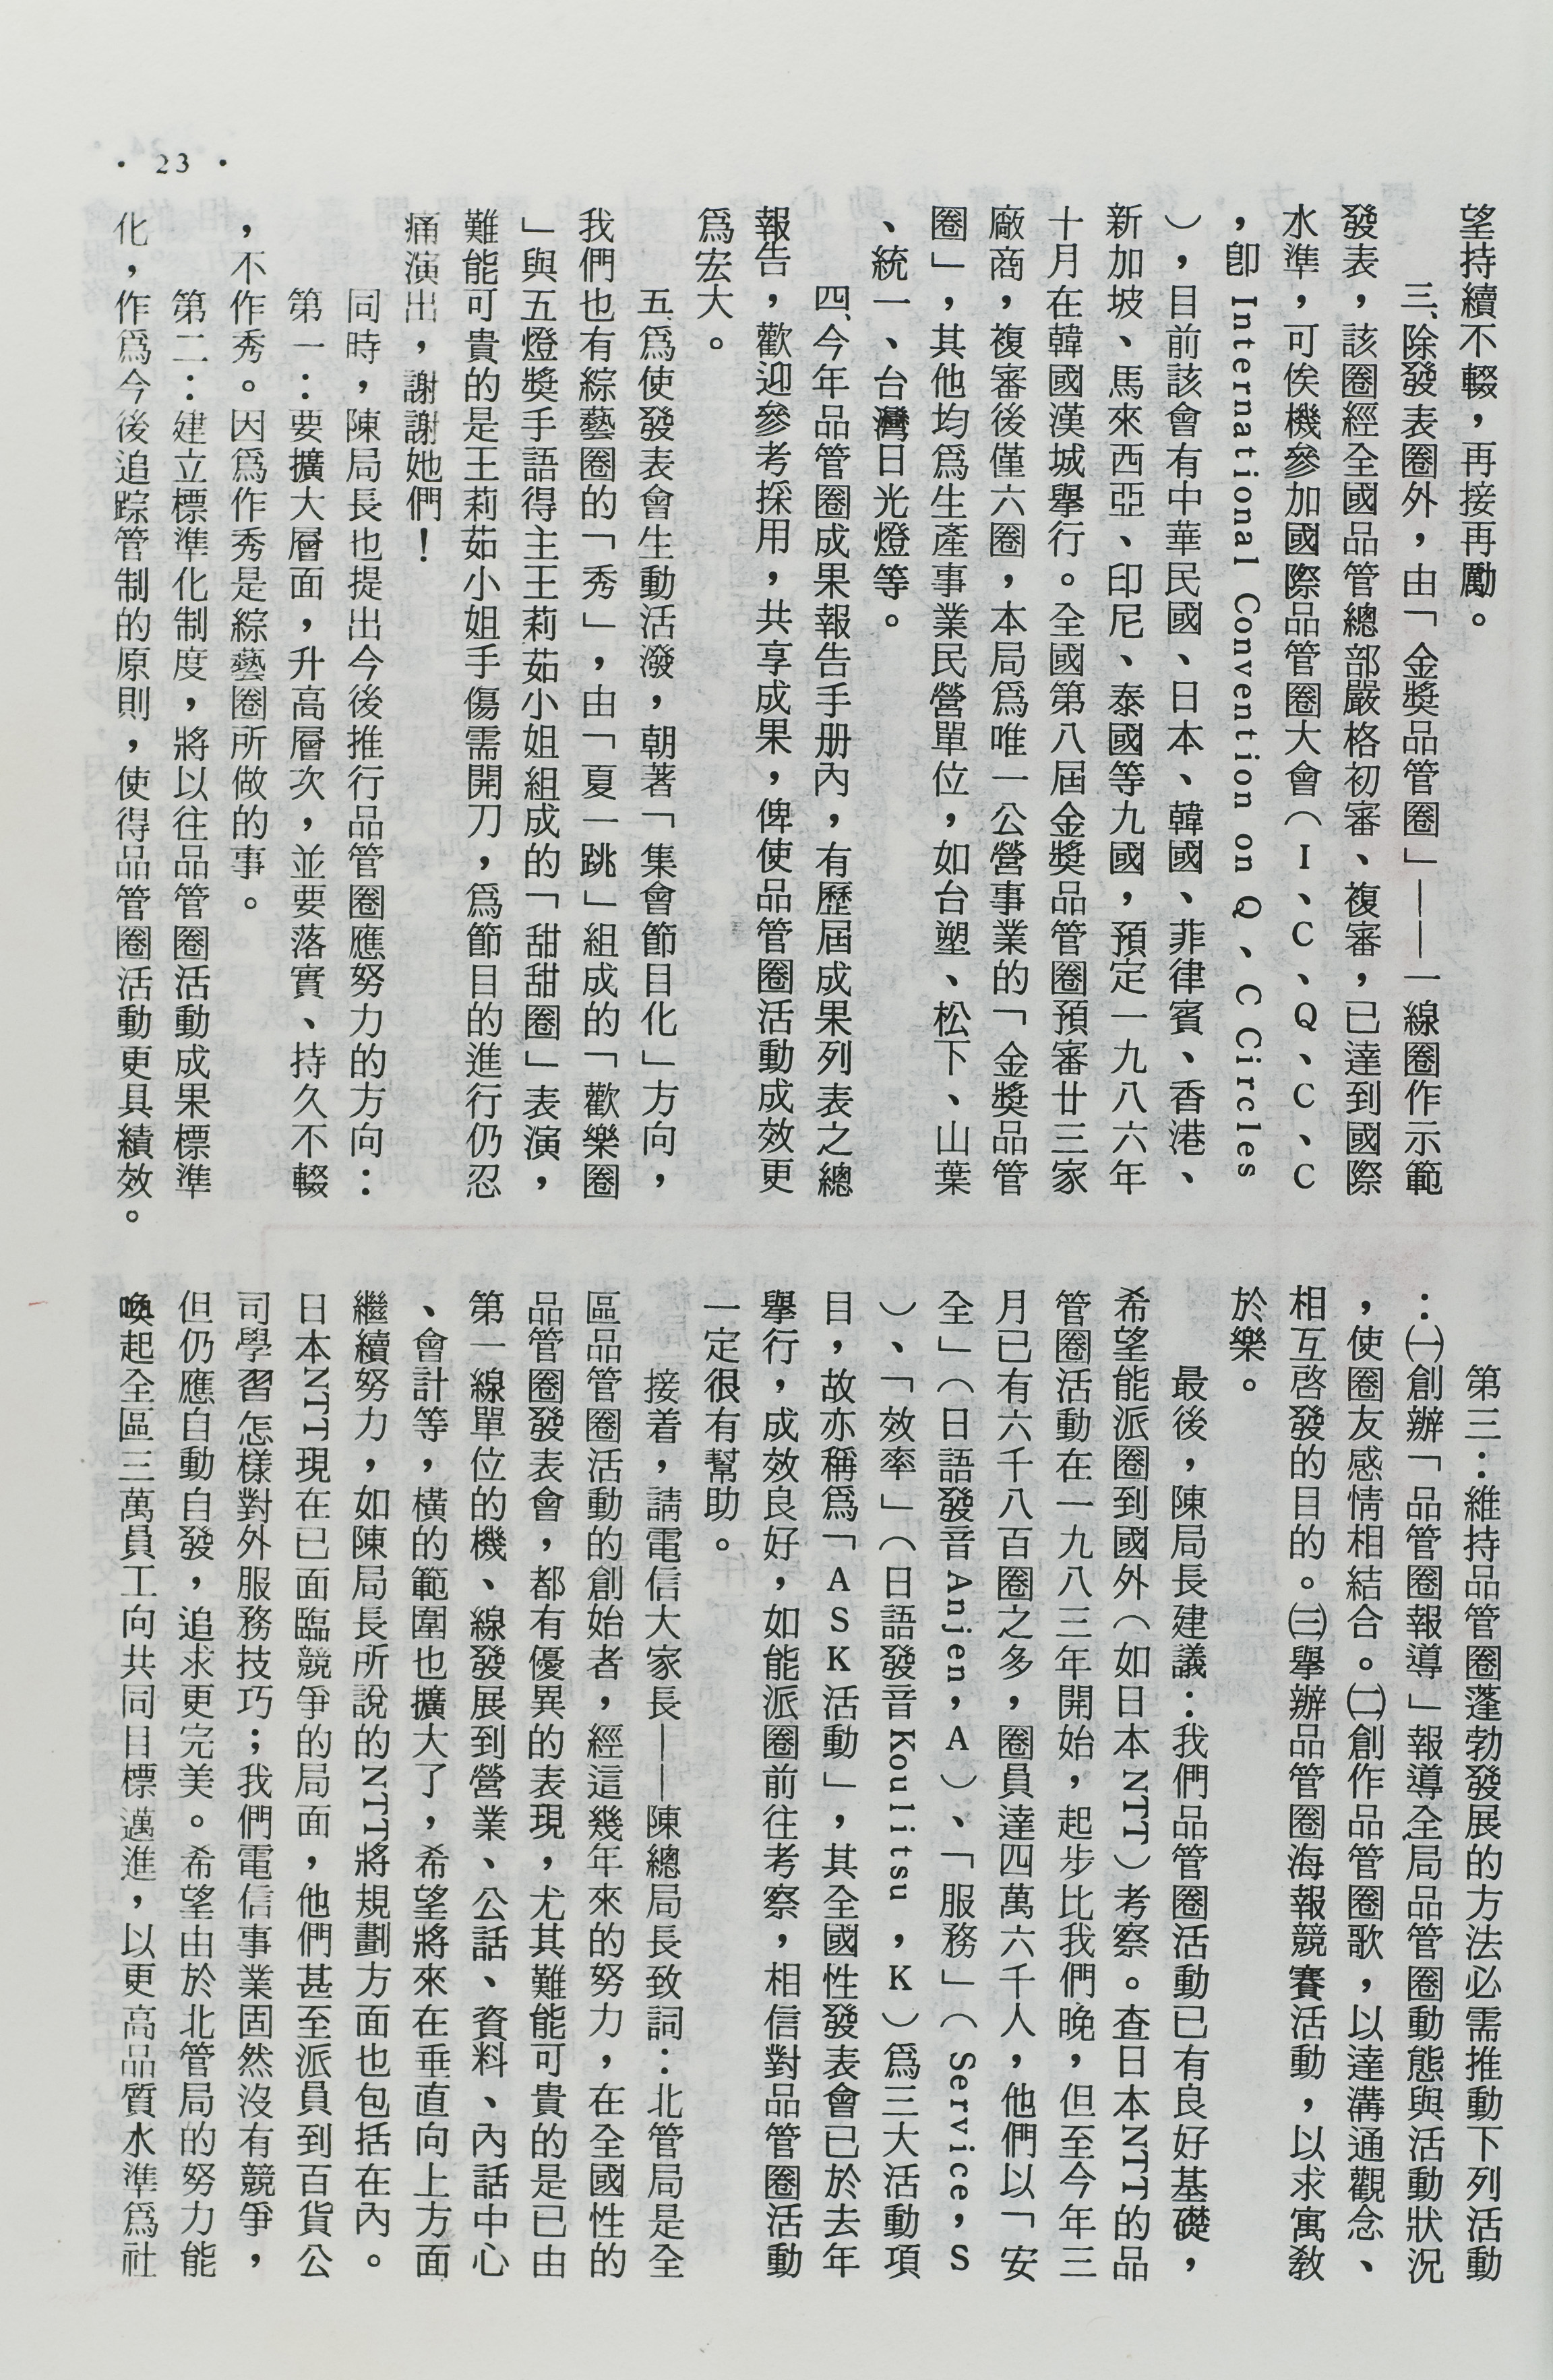 望持續不輟，再接再勵。
三、除發表圈外，由「金獎品管圈」——一線圈作示範
發表，該圈經全國品管總部嚴格初審、複審，已達到國際
水準，可俟機參加國際品管圈大會（I、C、Q、C、C
，卽 International Convention on Q、C Circles
），目前該會有中華民國、日本、韓國、菲律賓、香港、
新加坡、馬來西亞、印尼、泰國等九國，預定一九八六年
十月在韓國漢城舉行。全國第八屆金獎品管圈預審廿三家
廠商，複審後僅六圈，本局爲唯一公營事業的「金獎品管
圈」，其他均爲生產事業民營單位，如台塑、松下、山葉
、統一、台灣日光燈等。
四、今年品管圈成果報告手册內，有歷屆成果列表之總
報告，歡迎參考採用，共享成果，俾使品管圈活動成效更
爲宏大。
五、爲使發表會生動活潑，朝著「集會節目化」方向，
我們也有綜藝圈的「秀」，由「夏一跳」組成的「歡樂圈
」與五燈獎手語得主王莉茹小姐組成的「甜甜圈」表演，
難能可貴的是王莉茹小姐手傷需開刀，爲節目的進行仍忍
痛演出，謝謝她們！
同時，陳局長也提出今後推行品管圈應努力的方向：
第一：要擴大層面，升高層次，並要落實、持久不輟
，不作秀。因爲作秀是綜藝圈所做的事。
第二：建立標準化制度，將以往品管圈活動成果標準
化，作爲今後追踪管制的原則，使得品管圈活動更具績效。
第三：維持品管圈蓬勃發展的方法必需推動下列活動
：㈠創辦「品管圈報導」報導全局品管圈動態與活動狀況
，使圈友感情相結合。㈡創作品管圈歌，以達溝通觀念、
相互啓發的目的。㈢舉辦品管圈海報競賽活動，以求寓敎
於樂。
最後，陳局長建議：我們品管圈活動已有良好基礎，
希望能派圈到國外（如日本NTT）考察。查日本NTT的品
管圈活動在一九八三年開始，起步比我們晚，但至今年三
月已有六千八百圈之多，圈員達四萬六千人，他們以「安
全」（日語發音Anjen，A）、「服務」（Service，S
）、「效率」（日語發音Koulitsu，K）爲三大活動項
目，故亦稱爲「ASK活動」，其全國性發表會已於去年
舉行，成效良好，如能派圈前往考察，相信對品管圈活動
一定很有幫助。
接着，請電信大家長——陳總局長致詞：北管局是全
區品管圈活動的創始者，經這幾年來的努力，在全國性的
品管圈發表會，都有優異的表現，尤其難能可貴的是已由
第一線單位的機、線發展到營業、公話、資料、內話中心
、會計等，橫的範圍也擴大了，希望將來在垂直向上方面
繼續努力，如陳局長所說的NTT將規劃方面也包括在內。
日本NTT現在已面臨競爭的局面，他們甚至派員到百貨公
司學習怎樣對外服務技巧；我們電信事業固然沒有競爭，
但仍應自動自發，追求更完美。希望由於北管局的努力能
喚起全區三萬員工向共同目標邁進，以更高品質水準爲社
• 23 •